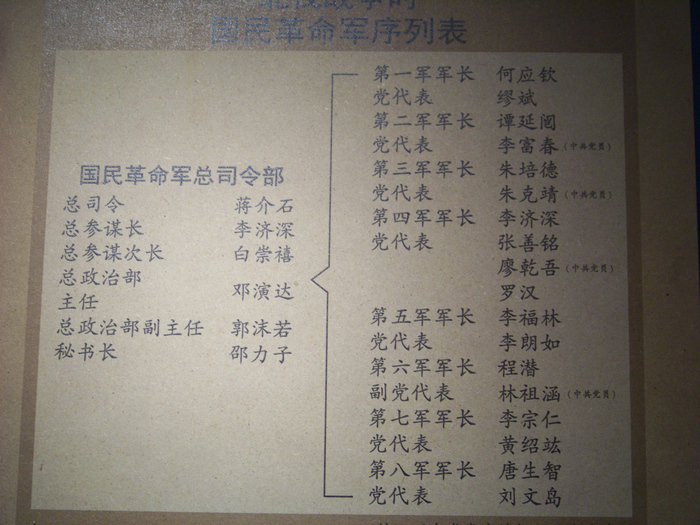 北伐战争时
国民革命军序列表
国民革命军总司令部
总司令 蒋介石
总参谋长 李济深
总参谋次长 白崇禧
总政治部
主任 邓演达
总政治部副主任 郭沫若
秘书长 邵力子
第一军军长 何应钦
党代表 缪斌
第二军军长 谭延闿
党代表 李富春(中共党员)
第三军军长 朱培德
党代表 朱克靖(中共党员)
第四军军长 李济深
党代表 张善铭
廖乾吾(中共党员)
罗汉
第五军军长 李福林
党代表 李朗如
第六军军长 程潜
副党代表 林祖涵(中共党员)
第七军军长 李宗仁
党代表 黄绍竑
第八军军长 唐生智
党代表 刘文岛